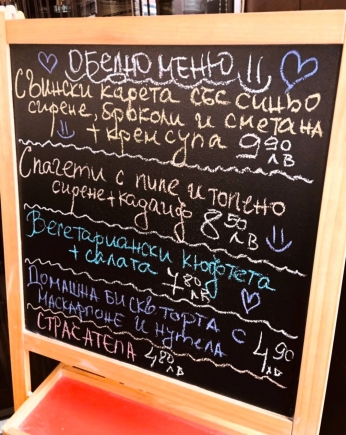 ОБЕДНО МЕНЮ
Свински карета със синьо
сирене, броколи и сметана
+ крем супа 9 90 лв
Спагети с пиле и топено
сирене + кадаиф 8 50 лв
Вегетариански кюфтета
+ салата 7 80 лв
Домашна бискв. торта с
маскарпоне и нутела 4,90 лв
СТРАЧАТЕЛА 4,80 лв